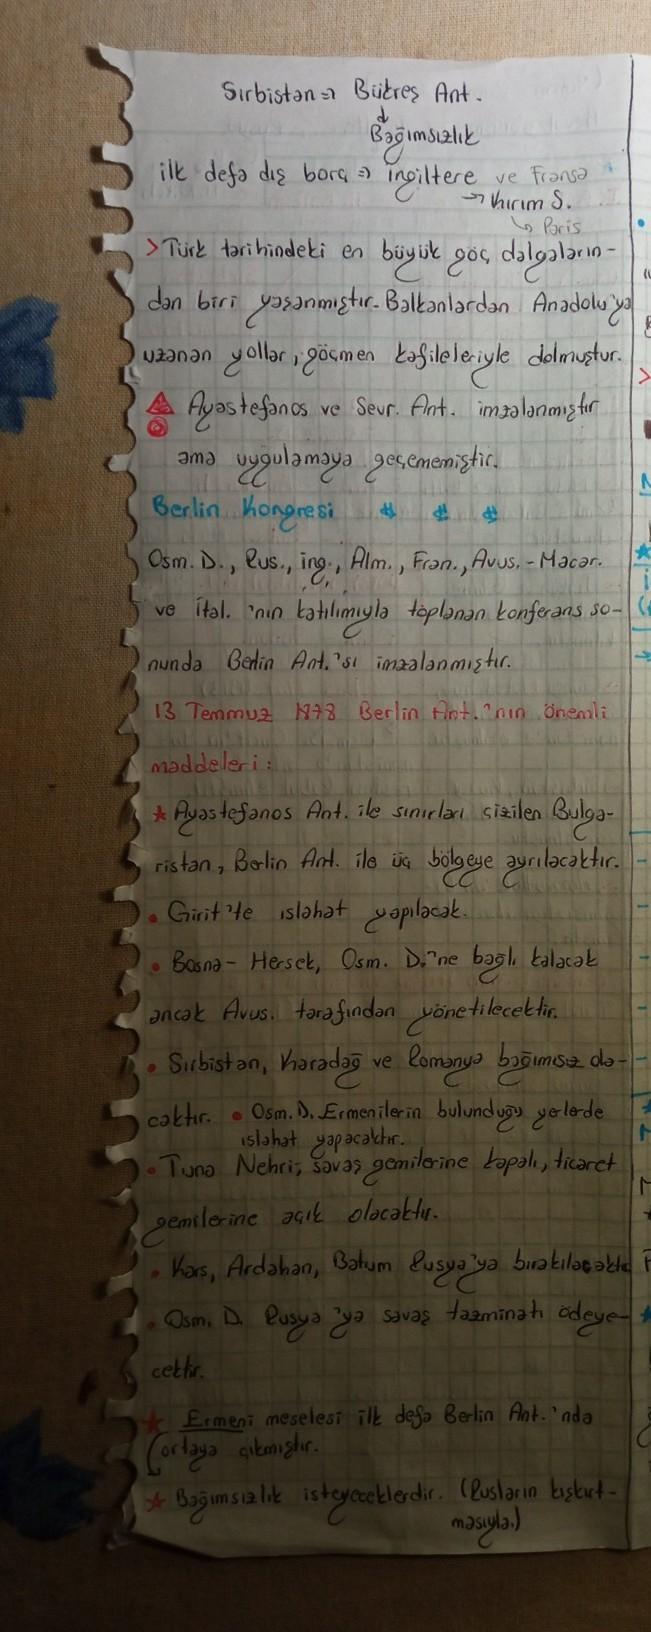 Sırbistan => Bükreş Ant.
Bağımsızlık
ilk defa dış borç => ingiltere ve Fransa
→ Kırım S.
↳ Paris
> Türk tarihindeki en büyük göç dalgaların-
dan biri yaşanmıştır. Balkanlardan Anadolu'ya
uzanan yollar, göçmen kafileleriyle dolmuştur.
Ayastefanos ve Sevr. Ant. imzalanmıştır
ama uygulamaya geçememiştir.
Berlin Kongresi
Osm. D., Rus., ing., Alm., Fran., Avus. - Macar.
ve İtal. 'nın katılımıyla toplanan konferans so-
nunda Berlin Ant.'sı imzalanmıştır.
13 Temmuz 1878 Berlin Ant.'nın önemli
maddeleri:
★ Ayastefanos Ant. ile sınırları çizilen Bulga-
ristan, Berlin Ant. ile üç bölgeye ayrılacaktır.
• Girit'te ıslahat yapılacak.
• Bosna - Hersek, Osm. D.'ne bağlı kalacak
ancak Avus. tarafından yönetilecektir.
• Sırbistan, Karadağ ve Romanya bağımısız ola-
caktır. • Osm. D. Ermenilerin bulunduğu yerlerde
ıslahat yapacaktır.
• Tuna Nehri; savaş gemilerine kapalı, ticaret
gemilerine açık olacaktır.
• Kars, Ardahan, Batum Rusya'ya bırakılacaktır
• Osm. D. Rusya'ya savaş tazminatı ödeye-
cektir.
★ Ermeni meselesi ilk defa Berlin Ant.'nda
ortaya çıkmıştır.
★ Bağımsızlık isteyeceklerdir. (Rusların kışkırt-
masıyla.)